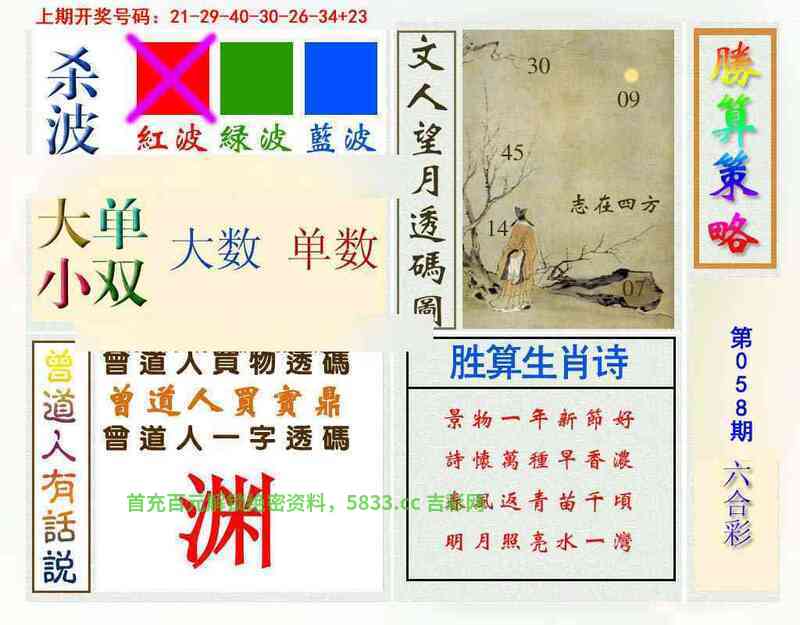 上期开奖号码：21-29-40-30-26-34+23
杀波
紅波
緑波
藍波
大单
小双
大数
单数
文人望月透碼圖
30
09
45
志在四方
14
07
勝算策略
第058期
六合彩
曾道人有話説
曾道人買物透碼
曾道人買寶鼎
曾道人一字透碼
渊
胜算生肖诗
景物一年新節好
詩懷萬種早香濃
春風返青苗千頃
明月照亮水一灣
首充百元 密资料，5833.cc 吉彩网